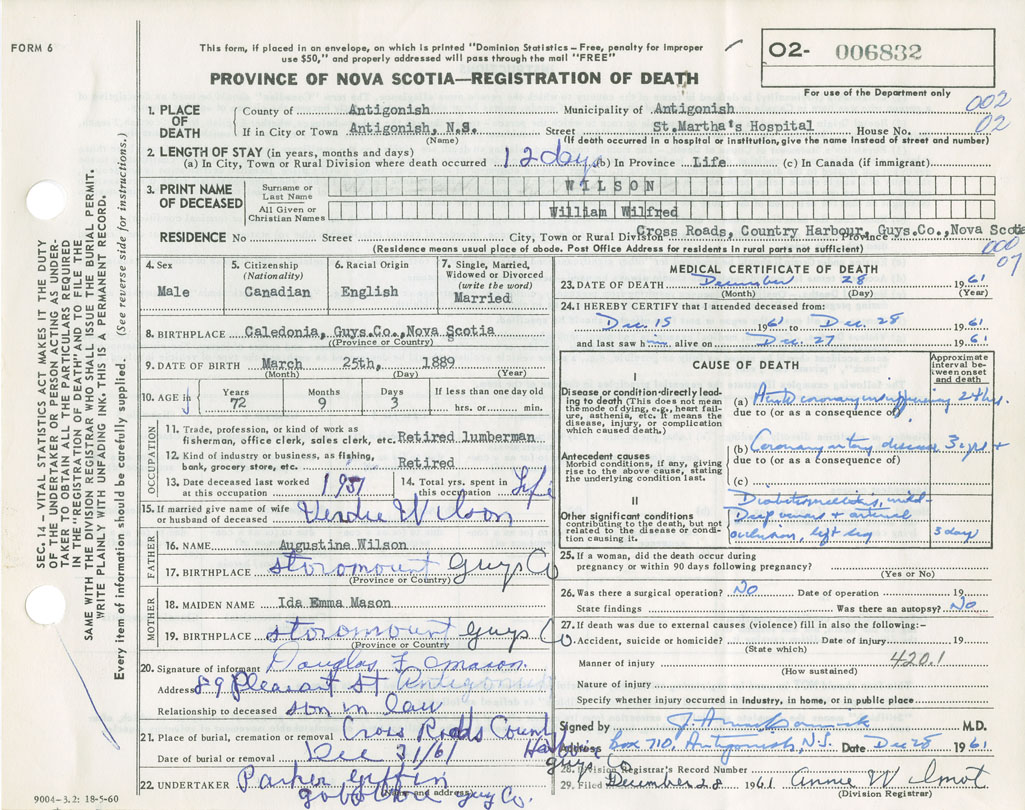 FORM 6
This form, if placed in an envelope, on which is printed "Dominion Statistics – Free, penalty for improper
use $50," and properly addressed will pass through the mail "FREE"
PROVINCE OF NOVA SCOTIA—REGISTRATION OF DEATH
O2- 006832
For use of the Department only
002
02
1. PLACE OF DEATH
County of Antigonish Municipality of Antigonish
If in City or Town Antigonish, N.S. Street St.Martha's Hospital House No.
(Name) (If death occurred in a hospital or institution, give the name instead of street and number)
2. LENGTH OF STAY (in years, months and days)
(a) In City, Town or Rural Division where death occurred 12 days (b) In Province Life (c) In Canada (if immigrant)
3. PRINT NAME OF DECEASED
Surname or Last Name WILSON
All Given or Christian Names William Wilfred
RESIDENCE No Street City, Town or Rural Division Cross Roads, Country Harbour, Guys.Co.,Nova Scotia Province
(Residence means usual place of abode. Post Office Address for residents in rural parts not sufficient)
000
07
4. Sex Male
5. Citizenship (Nationality) Canadian
6. Racial Origin English
7. Single, Married, Widowed or Divorced (write the word) Married
8. BIRTHPLACE Caledonia, Guys.Co.,Nova Scotia
((Province or Country)
9. DATE OF BIRTH March 25th, 1889
(Month) (Day) (Year)
10. AGE in Years 72 Months 9 Days 3 If less than one day old hrs. or min.
OCCUPATION
11. Trade, profession, or kind of work as
fisherman, office clerk, sales clerk, etc. Retired lumberman
12. Kind of industry or business, as fishing,
bank, grocery store, etc. Retired
13. Date deceased last worked at this occupation 1957
14. Total yrs. spent in this occupation Life
15. If married give name of wife
or husband of deceased Verdie Wilson
FATHER
16. NAME Augustine Wilson
17. BIRTHPLACE Storomount Guys Co
(Province or Country)
MOTHER
18. MAIDEN NAME Ida Emma Mason
19. BIRTHPLACE Storomount Guys Co.
(Province or Country
20. Signature of informant Douglas F Mason.
Address 89 Pleasant St Antigonish
Relationship to deceased son in law
21. Place of burial, cremation or removal Cross Rodds County Harbour Guys Co
Date of burial or removal Dec 31/61
22. UNDERTAKER Parker Griffin
(Name and address) Guy Co.
9004-3,2: 18-5-60
MEDICAL CERTIFICATE OF DEATH
23. DATE OF DEATH December 28 1961
(Month) (Day) (Year)
24. I HEREBY CERTIFY that I attended deceased from:
Dec. 15 1961 to Dec. 28 1961
and last saw him alive on Dec. 27 1961
CAUSE OF DEATH
Approximate interval between onset and death
I
Disease or condition directly leading to death (This does not mean the mode of dying, e.g., heart failure, asthenia, etc. It means the disease, injury, or complication which caused death.)
(a) coronary insufficiency 2 hrs.
due to (or as a consequence of)
Antecedent causes
Morbid conditions, if any, giving rise to the above cause, stating the underlying condition last.
(b) Coronary artery disease 3 yrs +
due to (or as a consequence of)
(c)
II
Other significant conditions
contributing to the death, but not related to the disease or condition causing it.
Diabetes mellitus, mild
Deep venous + arterial
occlusion, left leg 3 days
25. If a woman, did the death occur during
pregnancy or within 90 days following pregnancy?
(Yes or No)
26. Was there a surgical operation? No Date of operation 19
State findings Was there an autopsy? No
27. If death was due to external causes (violence) fill in also the following:–
Accident, suicide or homicide? Date of injury 19
(State which)
Manner of injury 420.1
(How sustained)
Nature of injury
Specify whether injury occurred in Industry, in home, or in public place
Signed by M.D.
Address Box 710, Antigonish, N.S. Date Dec 28 1961
28. Division Registrar's Record Number
29. Filed December 28 1961 Annie W Ilmot
(Division Registrar)
SEC. 14 – VITAL STATISTICS ACT MAKES IT THE DUTY
OF THE UNDERTAKER OR PERSON ACTING AS UNDER-
TAKER TO OBTAIN ALL THE PARTICULARS REQUIRED
IN THE "REGISTRATION OF DEATH" AND TO FILE THE
SAME WITH THE DIVISION REGISTRAR WHO SHALL ISSUE THE BURIAL PERMIT.
WRITE PLAINLY WITH UNFADING INK. THIS IS A PERMANENT RECORD.
Every item of information should be carefully supplied. (See reverse side for instructions.)